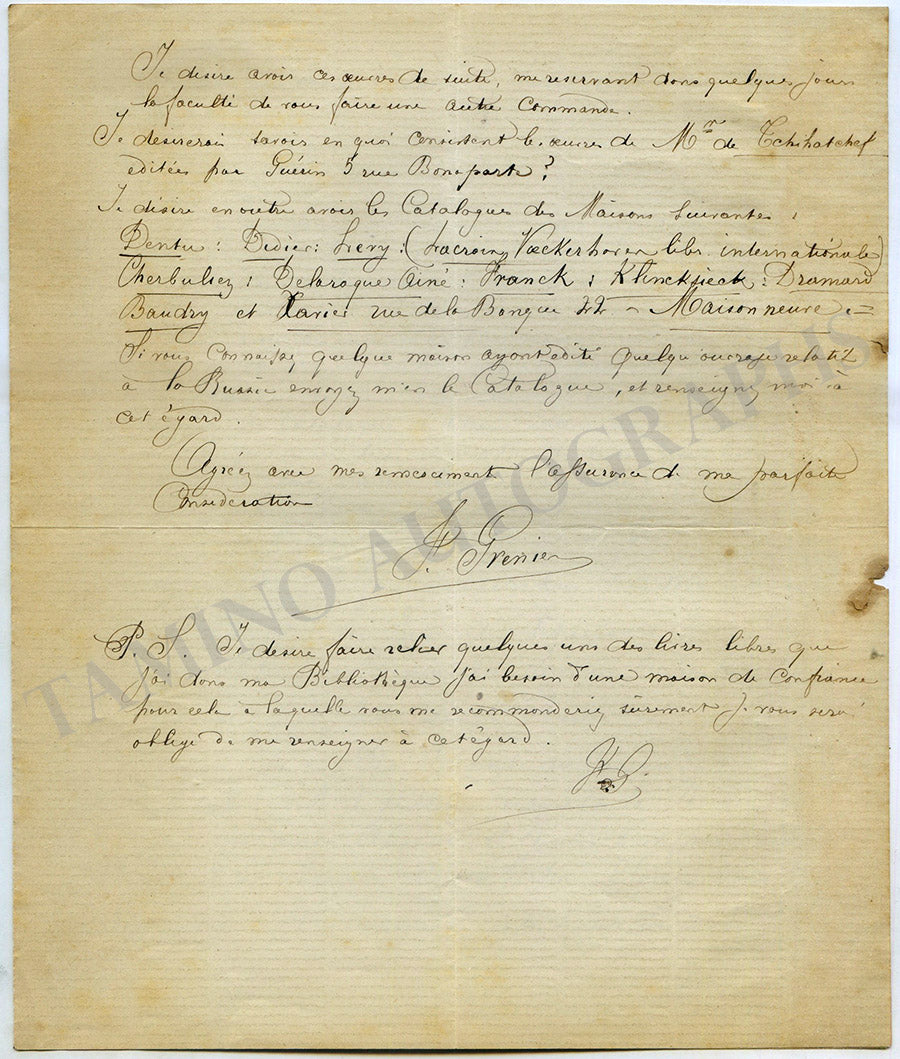 Je désire avoir ces œuvres de suite, me reservant dans quelques jours
la faculté de vous faire une autre Commande.
Je désirerais savoir en quoi consistent les œuvres de Mr de Tchihatchef
editées par Guérin 5 rue Bonaparte?
Je désire en outre avoir les Catalogues des Maisons suivantes :
Dentu : Didier : Levy : (Lacroix, Vockerhoven libr. internationale)
Cherbuliez : Delaroque Ainé : Franck : Klincksieck : Dramard
Baudry et rue de la Banque 22 - Maisonneuve . =
Si vous connaissez quelque maison ayant edité quelqu'ouvrage relatif
à la Russie envoyez m'en le Catalogue, et renseignez moi à
cet égard.
Agréez avec mes remerciements l'assurance de ma parfaite
Considération
Grenier
P. S. Je desire faire relier quelques uns des livres libres que
j'ai dans ma Bibliothèque j'ai besoin d'une maison de Confiance
pour cela à laquelle vous me recommanderiez sûrement je vous serai
obligé de me renseigner à cet égard.
G.
TAMINO AUTOGRAPHS